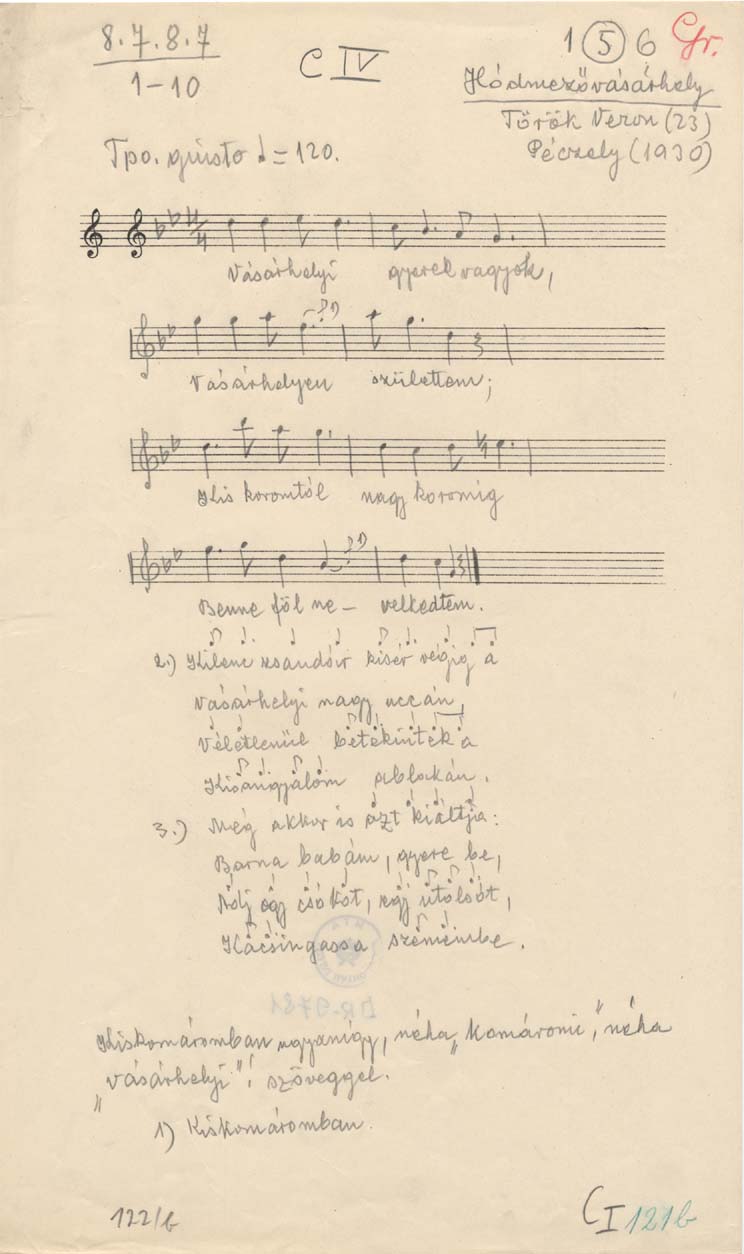 8.7.8.7
1-10
C IV
1 5 6 Gr.
Hódmezővásárhely
Török Veron (23)
Péczely (1930)
Tpo. giusto ♩=120.
Vásárhelyi gyerek vagyok,
1)
Vásárhelyen születtem;
Kis koromtól nagy koromig
1)
Benne föl ne- velkedtem.
2.) Kilenc zsandár kisér végig a
vásárhelyi nagy uccán,
Véletlenül betekintek a
Kisangyalom ablakán.
3.) Még akkor is azt kiáltja:
Barna babám, gyere be,
Adj egy csókot, egy utolsót,
Kacsingass a szemembe.
DR-9781
Kiskomáromban ugyanígy, néha „komáromi”, néha
„vásárhelyi” szöveggel.
1) Kiskomáromban.
122/b
C I 121b